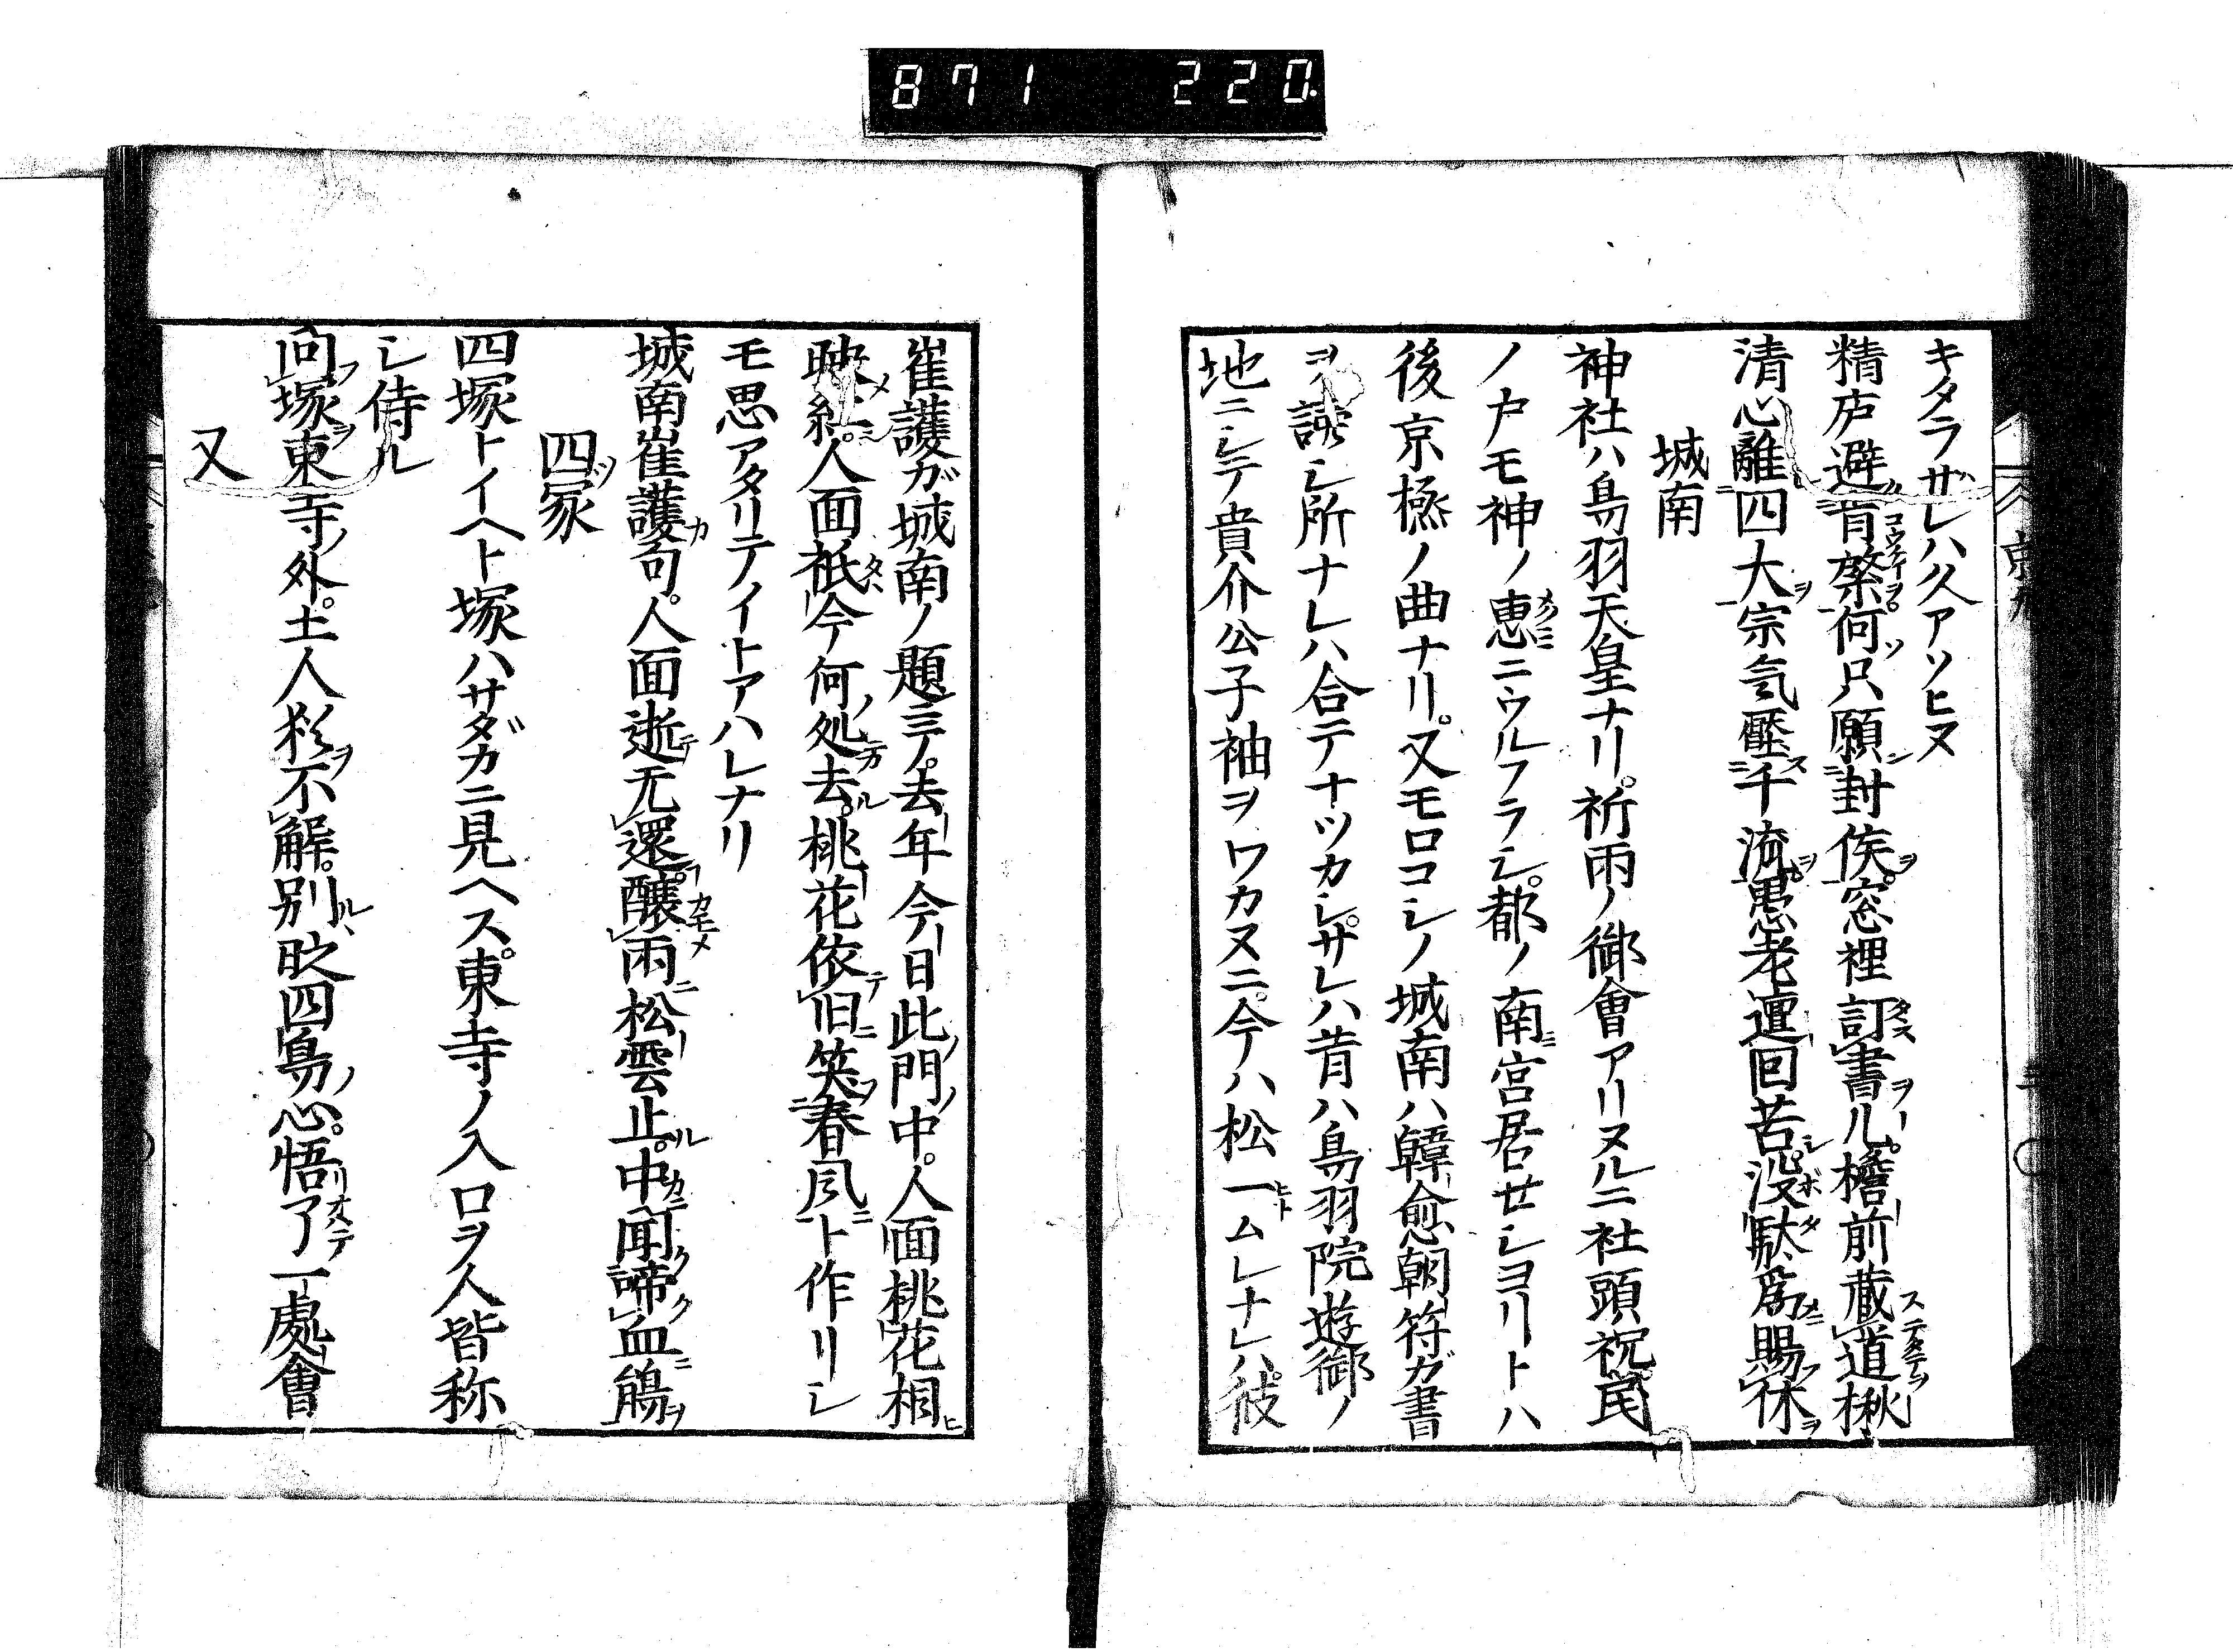 871 220.
キタラザレハ久アソヒヌ
精庐避肯綮何只願封侯窓裡訂書ル檐前蔵道楸
清心離四大宗気壓千流愚老邅回苦没駄為賜休
城南
神社ハ鳥羽天皇ナリ祈雨ノ御會アリヌルニ社頭祝民
ノ戸モ神ノ恵ニウルフラシ都ノ南宮居せシヨリトハ
後京極ノ曲ナリ又モロコシノ城南ハ韓愈朝符ガ書
ヲ読シ所ナレハ合テナツカシサレハ昔ハ鳥羽院遊御ノ
地ニシテ貴介公子袖ヲワカスニ今ハ松一ムレナレハ彼
崔護ガ城南ノ題ニ去年今日此門中人面桃花相
映紅人面祇今何処去桃花依旧笑春風ト作リシ
モ思アタリテイトアハレナリ
城南崔護句人面逝无還醸雨松雲止中聞啼血鵑
四冢
四塚トイヘト塚ハサダカニ見ヘス東寺ノ入口ヲ人皆称
シ侍ル
向塚東寺外土人不解別欧四鳥心悟了一處會
又